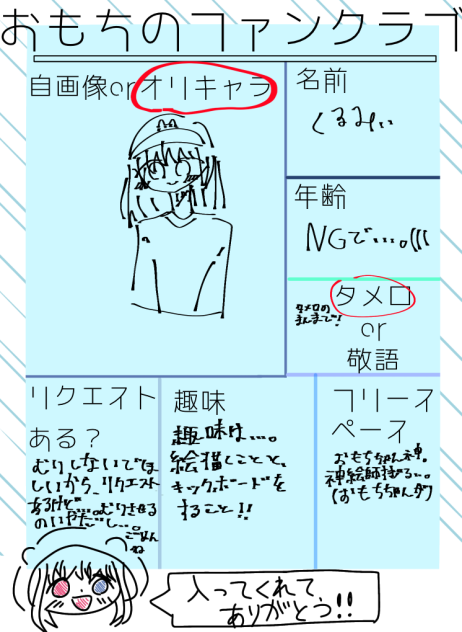 おもちのファンクラブ
自画像orオリキャラ
名前
くるみぃ
年齢
NGで…。(((
タメロ
or
敬語
タメロの
まんまで!
リクエスト
ある?
むりしないでほ
しいから、リクエスト
あるけど…。むりさせる
のいやだし…。
ごめん
ね
趣味
趣味は…。
絵描くことと、
キックボードを
すること!!
フリース
ペース
おもちちゃん神。
神絵師すぎる…。
(おもちちゃんが)
入ってくれて、
ありがとう!!